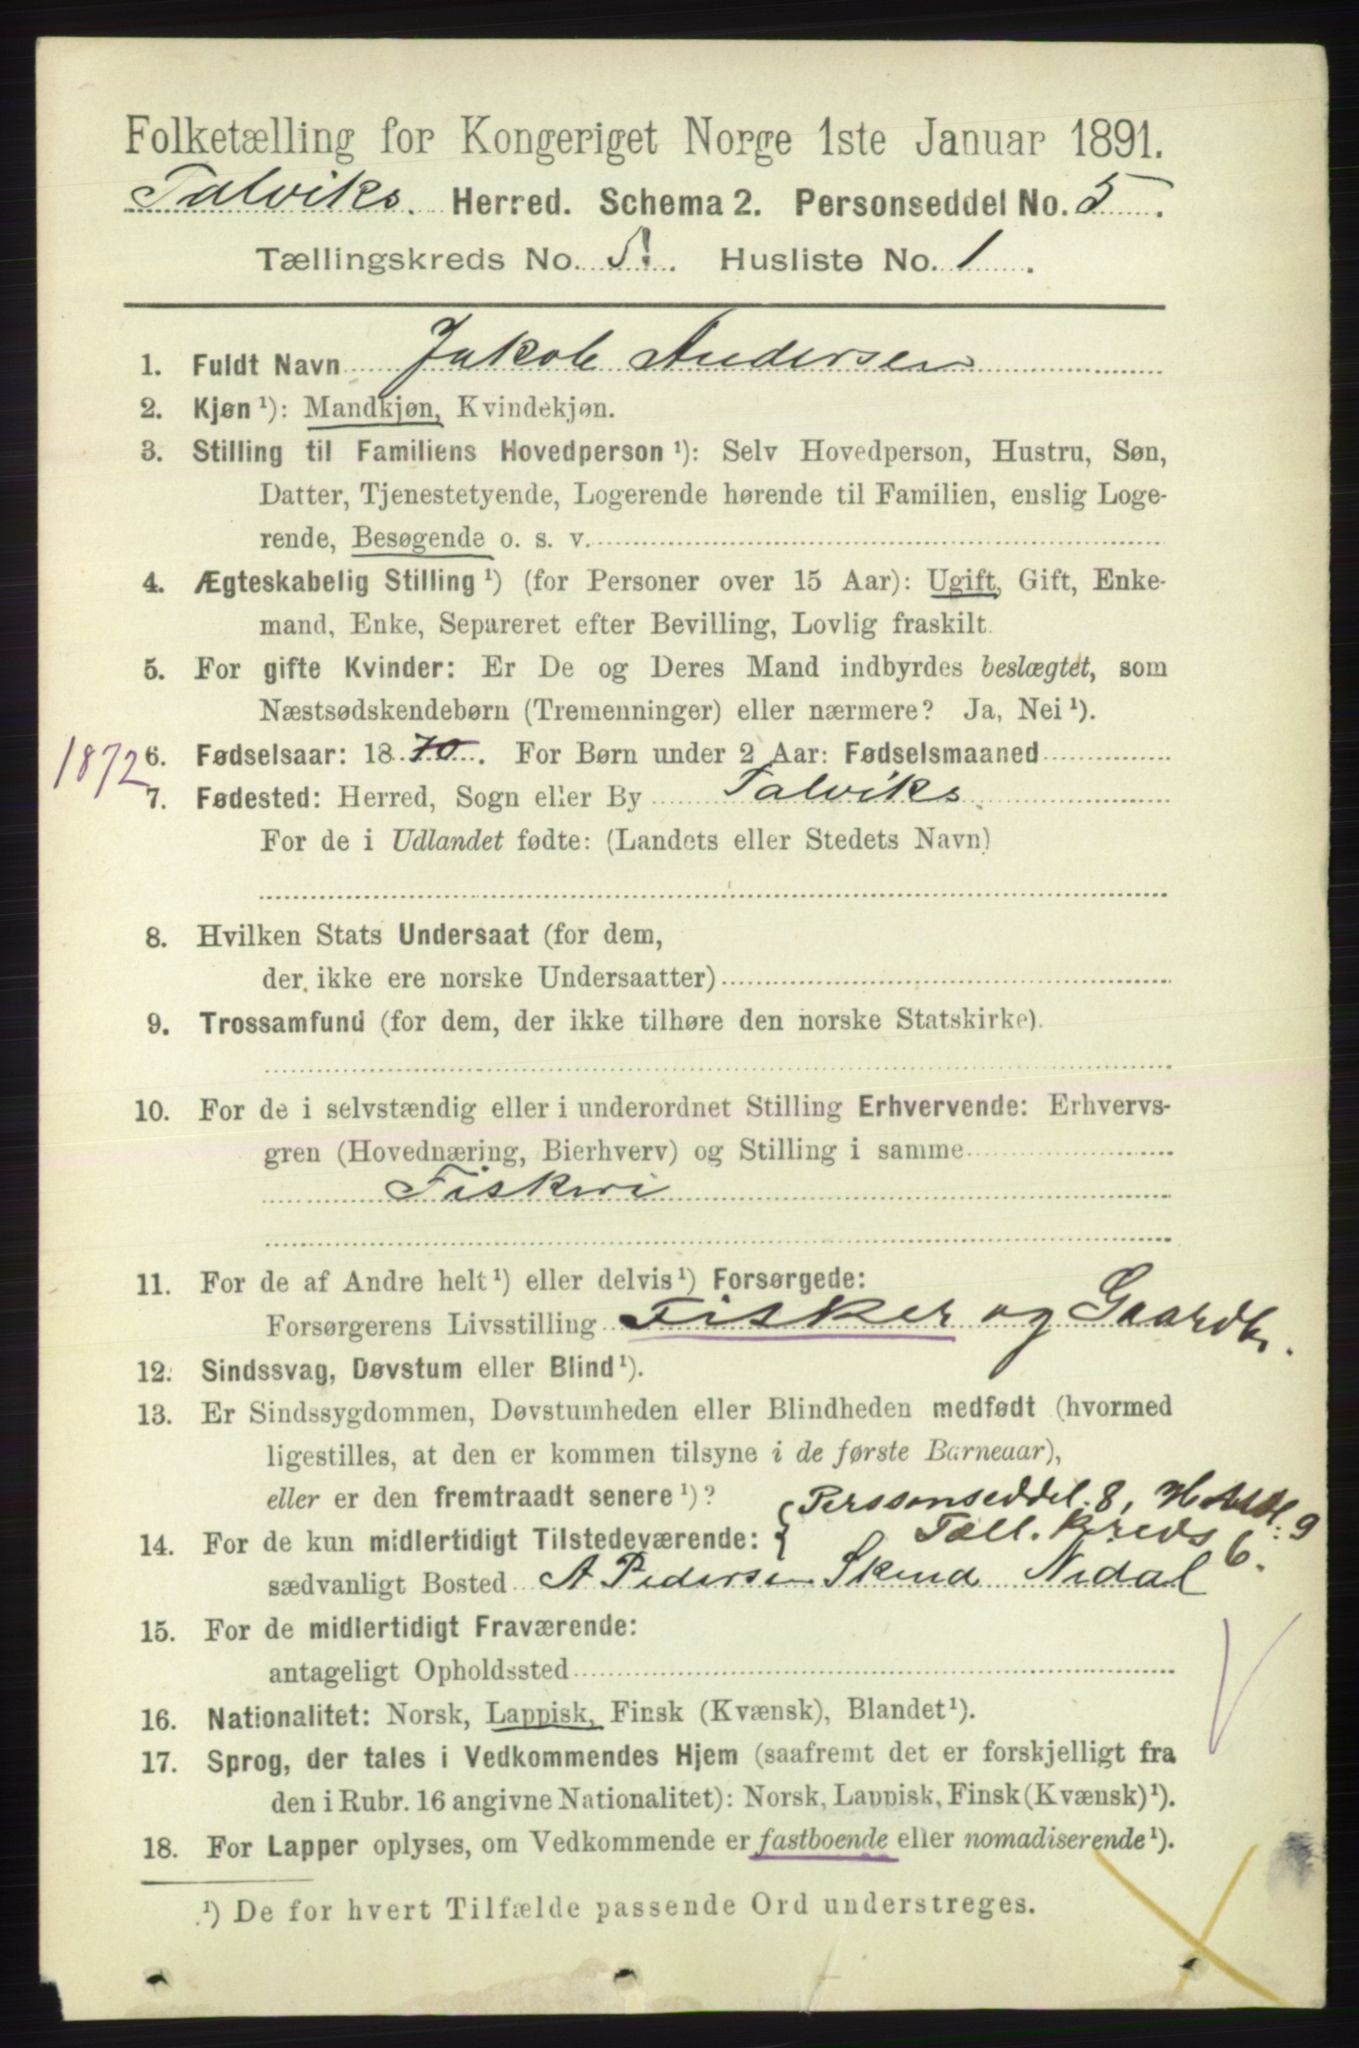 Folketælling for Kongeriget Norge 1ste Januar 1891.
Talviks. Herred. Schema 2. Personseddel No. 5.
Tællingskreds No. 5. Husliste No. 1.
1. Fuldt Navn Jakob Andersen
2. Kjøn¹): Mandkjøn, Kvindekjøn.
3. Stilling til Familiens Hovedperson¹): Selv Hovedperson, Hustru, Søn,
Datter, Tjenestetyende, Logerende hørende til Familien, enslig Loge-
rende, Besøgende o. s. v.
4. Ægteskabelig Stilling¹) (for Personer over 15 Aar): Ugift, Gift, Enke-
mand, Enke, Separeret efter Bevilling, Lovlig fraskilt.
5. For gifte Kvinder: Er De og Deres Mand indbyrdes beslægtet, som
Næstsødskendebørn (Tremenninger) eller nærmere? Ja, Nei¹).
1872 6. Fødselsaar: 1870. For Børn under 2 Aar: Fødselsmaaned
7. Fødested: Herred, Sogn eller By Talviks.
For de i Udlandet fødte: (Landets eller Stedets Navn)
8. Hvilken Stats Undersaat (for dem,
der ikke ere norske Undersaatter)
9. Trossamfund (for dem, der ikke tilhøre den norske Statskirke).
10. For de i selvstændig eller i underordnet Stilling Erhvervende: Erhvervs-
gren (Hovednæring, Bierhverv) og Stilling i samme
Fiskeri
11. For de af Andre helt¹) eller delvis¹) Forsørgede:
Forsørgerens Livsstilling Fisker og Gaardb.
12. Sindssvag, Døvstum eller Blind¹).
13. Er Sindssygdommen, Døvstumheden eller Blindheden medfødt (hvormed
ligestilles, at den er kommen tilsyne i de første Barneaar),
eller er den fremtraadt senere¹)? Perssonseddel. 8, 9
14. For de kun midlertidigt Tilstedeværende: { Tæll. kreds 6.
sædvanligt Bosted A Pedersen Nedal
15. For de midlertidigt Fraværende:
antageligt Opholdssted
16. Nationalitet: Norsk, Lappisk, Finsk (Kvænsk), Blandet¹).
17. Sprog, der tales i Vedkommendes Hjem (saafremt det er forskjelligt fra
den i Rubr. 16 angivne Nationalitet): Norsk, Lappisk, Finsk (Kvænsk)¹).
18. For Lapper oplyses, om Vedkommende er fastboende eller nomadiserende¹).
¹) De for hvert Tilfælde passende Ord understreges.